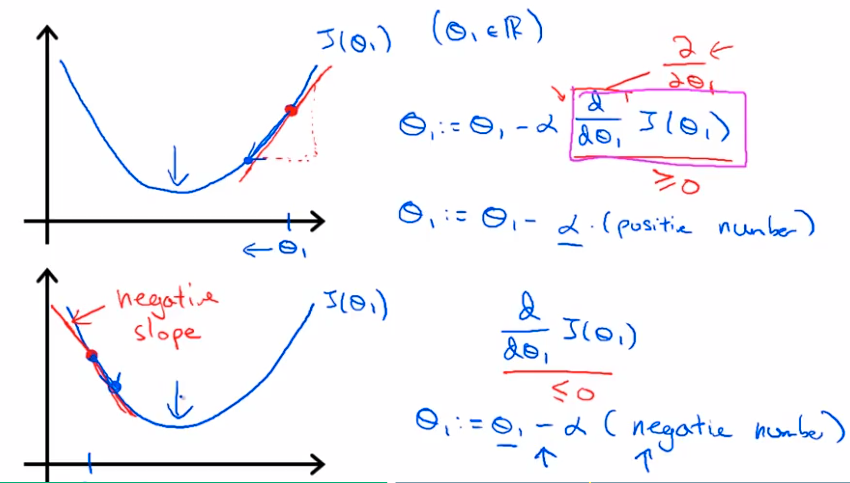 J(θ₁) (θ₁ ∈ ℝ)
∂/∂θ₁ ←
θ₁ := θ₁ - α d/dθ₁ J(θ₁)
≥ 0
θ₁ := θ₁ - α · (positie number)
← θ₁
negative slope
J(θ₁)
d/dθ₁ J(θ₁)
≤ 0
θ₁ := θ₁ - α (negatie number)